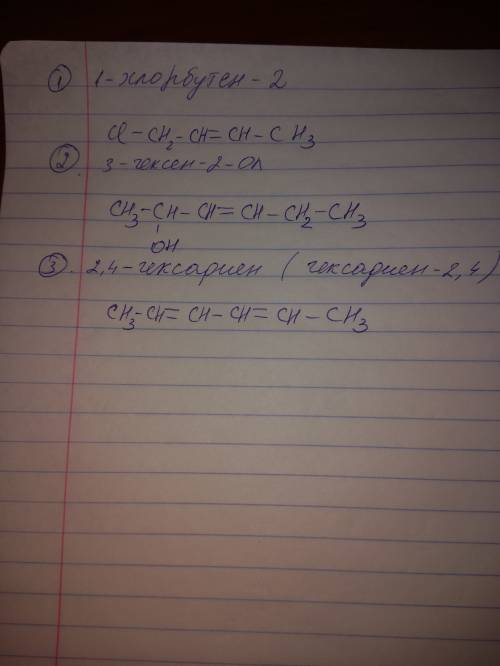 ① 1-хлорбутен-2
Cl-CH₂-CH=CH-CH₃
② 3-гексен-2-ол
CH₃-CH-CH=CH-CH₂-CH₃
OH
③. 2,4-гексадиен (гексадиен-2,4)
CH₃-CH=CH-CH=CH-CH₃